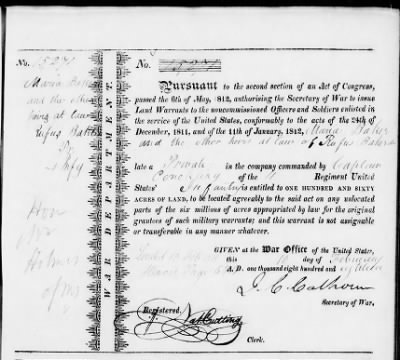 No. 15271
Maria Baker
and the other
heirs at law
Rufus Baker
Hon
Mr
Holmes
of Ms
WAR DEPARTMENT.
No. 15271
Pursuant to the second section of an Act of Congress,
passed the 6th of May, 1812, authorising the Secretary of War to issue
Land Warrants to the noncommissioned Officers and Soldiers enlisted in
the service of the United States, conformably to the acts of the 24th of
December, 1811, and of the 11th of January, 1812, Maria Baker
and the other heirs at law of Rufus Baker
late a Private in the company commanded by Captain
of the Regiment United
States' Infantry is entitled to ONE HUNDRED AND SIXTY
ACRES OF LAND, to be located agreeably to the said act on any unlocated
parts of the six millions of acres appropriated by law for the original
grantees of such military warrants; and this warrant is not assignable
or transferable in any manner whatever.
GIVEN at the War Office of the United States,
this 10 day of February
A. D. one thousand eight hundred and
J. C. Calhoun
Secretary of War.
Registered,
Clerk.